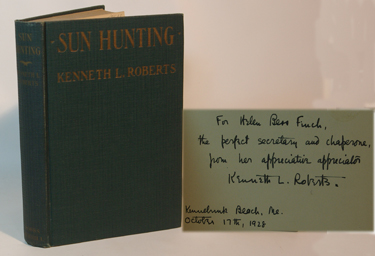 SUN HUNTING
KENNETH L. ROBERTS
SUN
HUNTING
For Helen Bess Finch,
the perfect secretary and chaperone,
from her appreciative appreciator
Kenneth L. Roberts.
Kennebunk Beach, Me.
October 17th, 1928